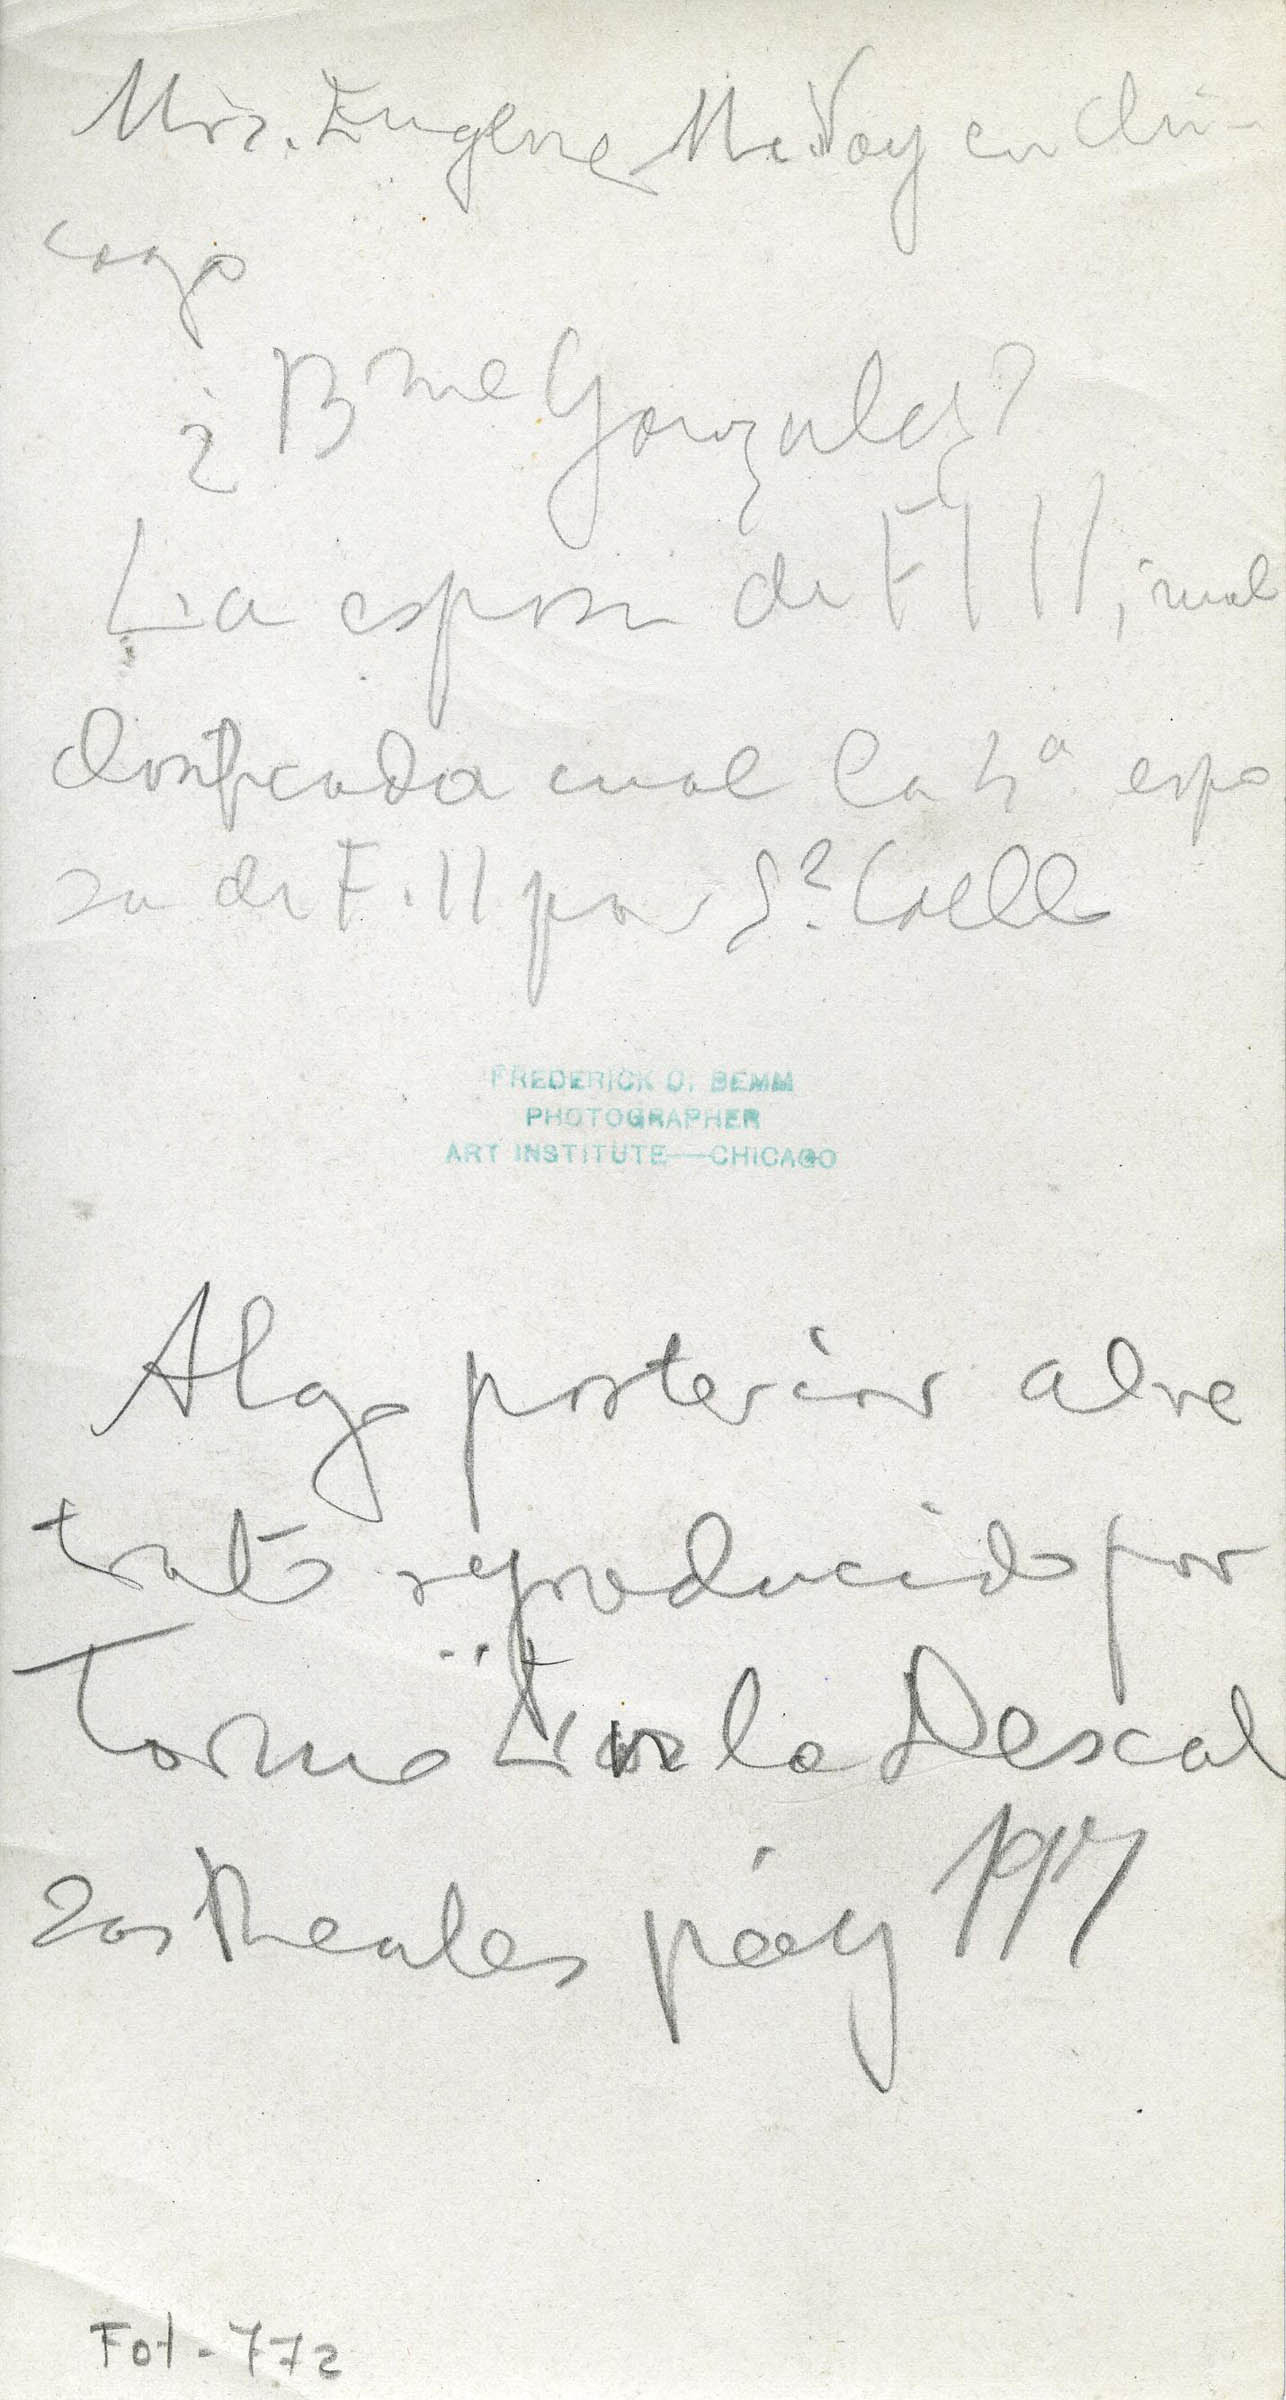 Mrs. Eugene McVoy en Chi-
cago
¿ Bme Gonzalez?
La esposa de F III, mal
clasificada cual la 4ª espo
sa de F. II por S? Coello
FREDERICK O. BEMM
PHOTOGRAPHER
ART INSTITUTE—CHICAGO
Algo posterior al re
trato reproducido por
Tormo en la Descal
zas Reales pág 197
Fot-772